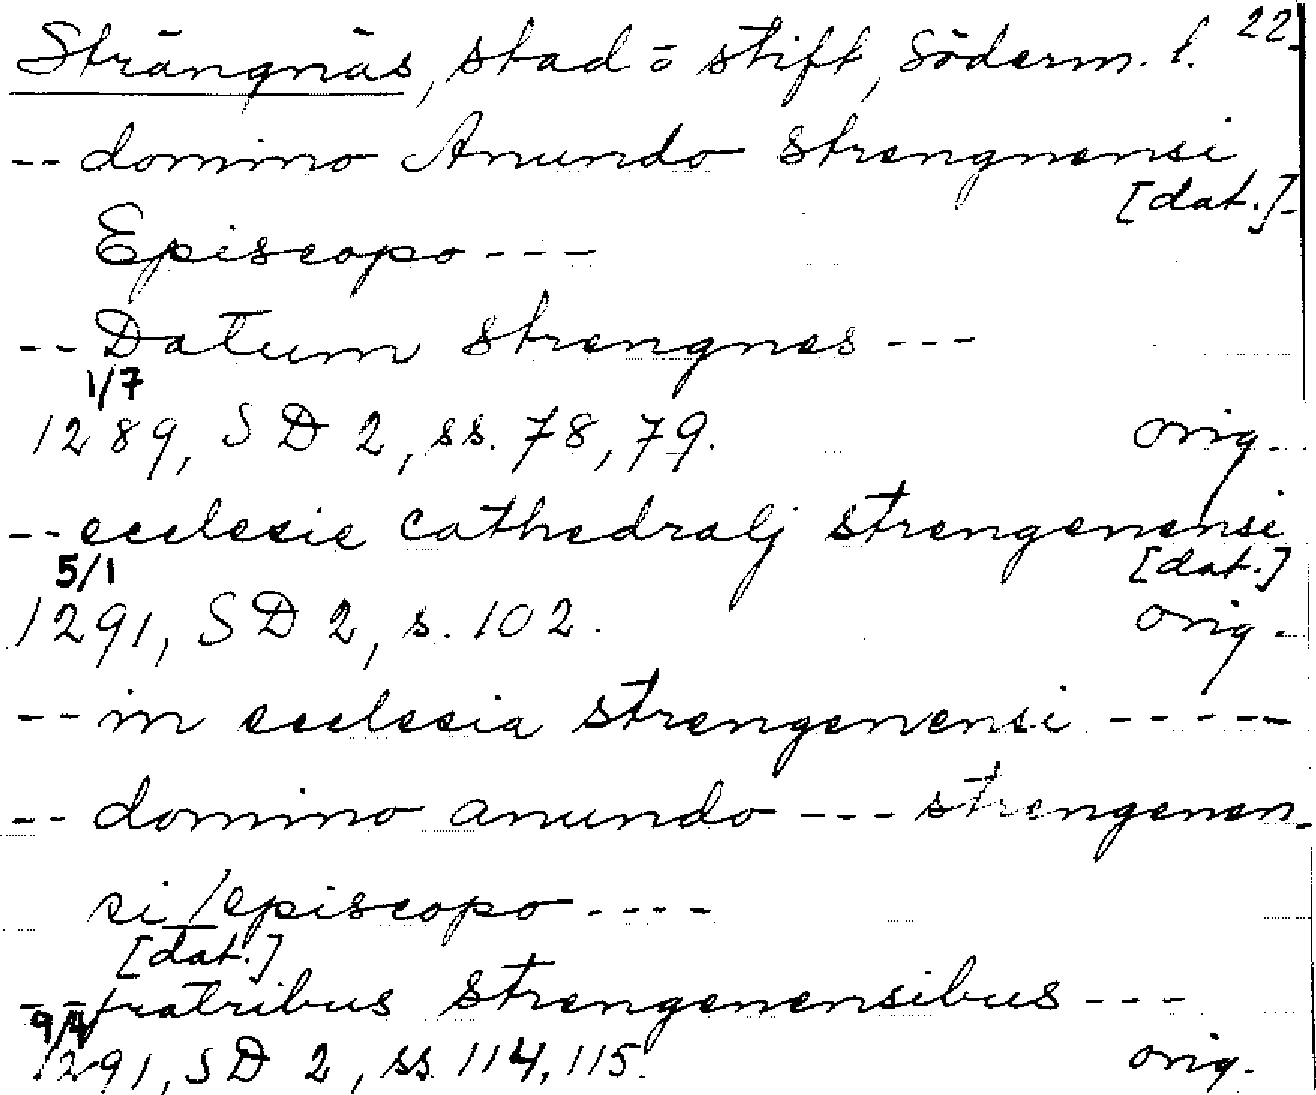 Strängnäs, stad o stift, Söderm. l. 22.
-- domino Anundo Strengnensi
[dat.]
Episcopo ---
-- Datum Strengnes ---
1/7
1289, SD 2, ss. 78, 79. orig.
-- ecclesie cathedralj strengenensi
5/1 [dat.]
1291, SD 2, s. 102. orig.
-- in ecclesia strengenensi -----
-- domino anundo --- strengenen-
si/episcopo ----
[dat.]
-- fratribus strengenensibus ---
1291, SD 2, ss. 114, 115. orig.